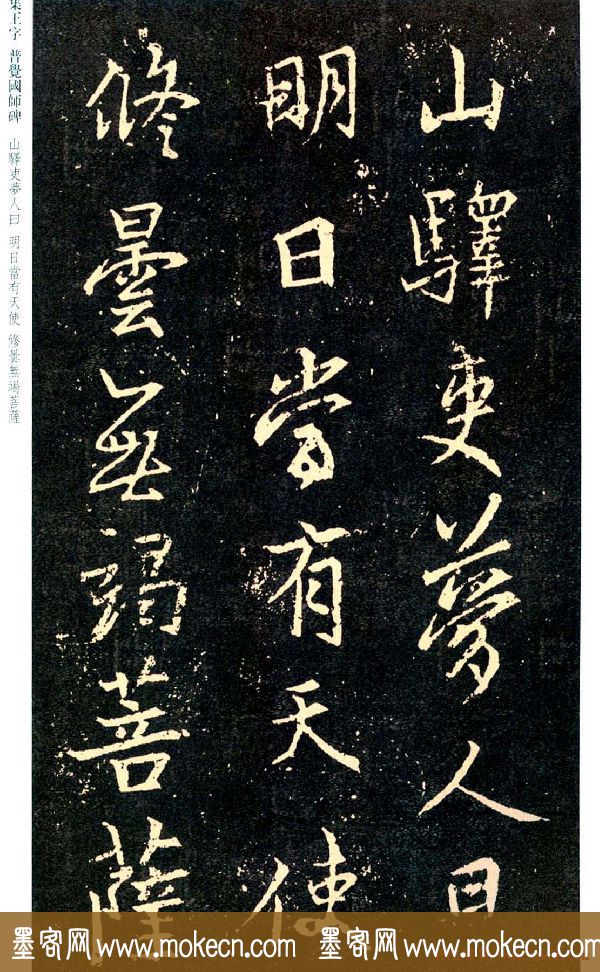 山驛吏夢人曰
明日當有天使
修曇無竭菩薩
集王字 普覺國師碑 山驛吏夢人曰 明日當有天使 修曇無竭菩薩
墨客网 www.mokecn.com 墨客网 www.mokecn.com